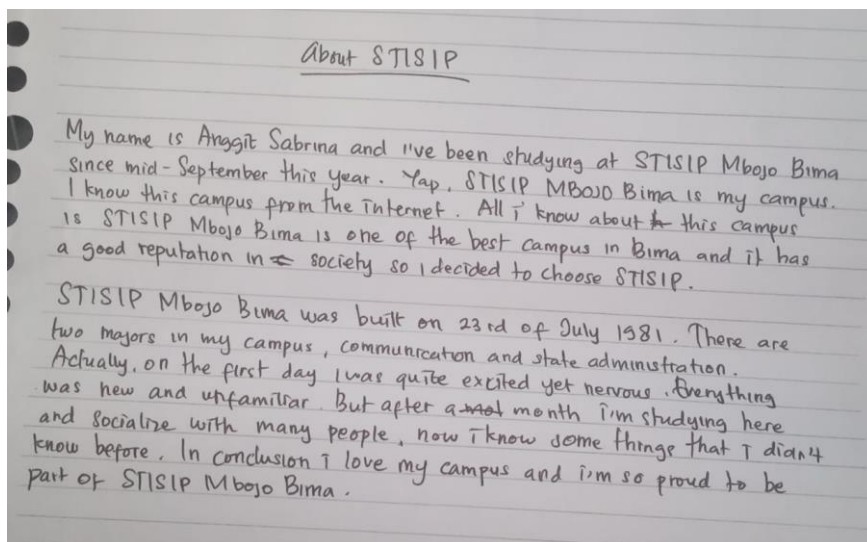 About STISIP
My name is Anggit Sabrina and i've been studying at STISIP Mbojo Bima
since mid-September this year. Yap, STISIP MBOJO Bima is my campus.
I know this campus from the internet. All i know about this campus
is STISIP Mbojo Bima is one of the best campus in Bima and it has
a good reputation in society so i decided to choose STISIP.
STISIP Mbojo Bima was built on 23rd of July 1981. There are
two majors in my campus, communication and state administration.
Actually, on the first day i was quite excited yet nervous. Everything
was new and unfamiliar. But after a month i'm studying here
and socialize with many people, now i know some things that I didn't
know before. In conclusion I love my campus and i'm so proud to be
part of STISIP Mbojo Bima.